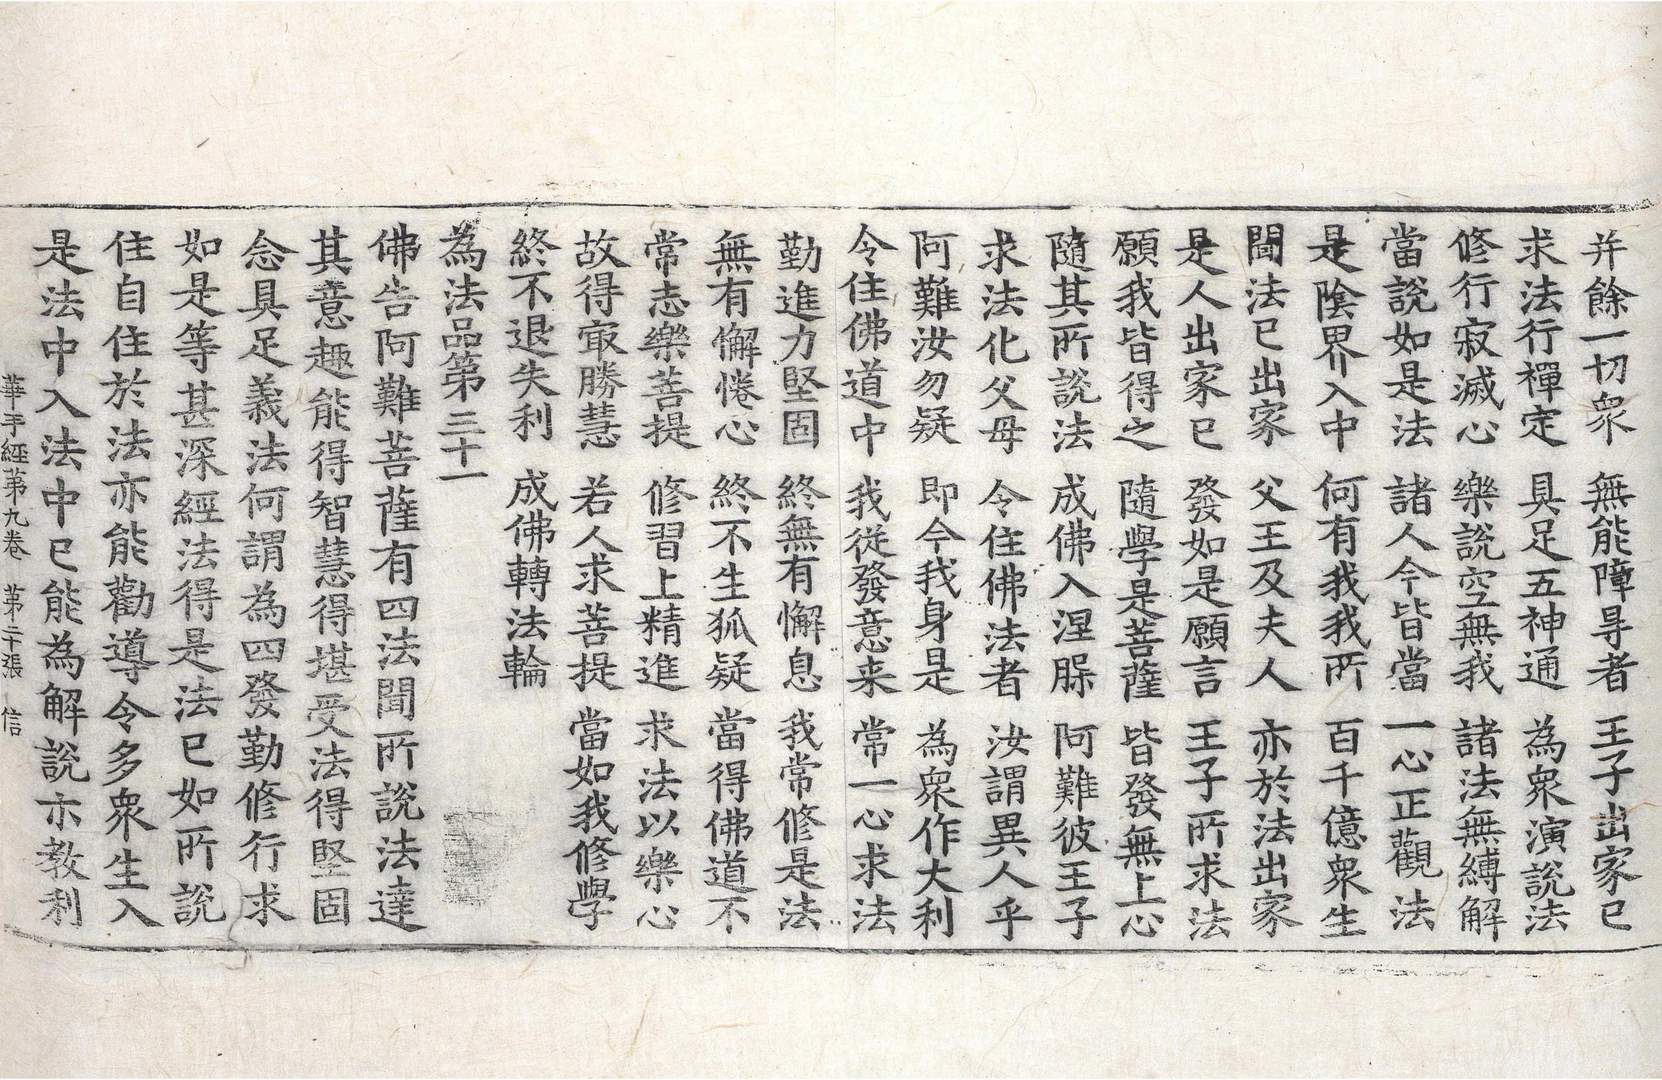 并餘一切衆　無能障㝵者　王子出家已
求法行禪定　具足五神通　為衆演說法
修行寂滅心　樂說空無我　諸法無縛解
當說如是法　諸人今皆當　一心正觀法
是陰界入中　何有我我所　百千億衆生
聞法已出家　父王及夫人　亦於法出家
是人出家已　發如是願言　王子所求法
願我皆得之　隨學是菩薩　皆發無上心
隨其所說法　成佛入涅槃　阿難彼王子
求法化父母　令住佛法者　汝謂異人乎
阿難汝勿疑　即今我身是　為衆作大利
令住佛道中　我從發意来　常一心求法
勤進力堅固　終無有懈息　我常修是法
無有懈惓心　終不生狐疑　當得佛道不
常志樂菩提　修習上精進　求法以樂心
故得㝡勝慧　若人求菩提　當如我修學
終不退失利　成佛轉法輪
為法品第三十一
佛告阿難菩薩有四法聞所說法達
其意趣能得智慧得堪受法得堅固
念具足義法何謂為四發勤修行求
如是等甚深經法得是法已如所說
住自住於法亦能勸導令多衆生入
是法中入法中已能為解說亦教利
華手經第九卷　第二十張　信